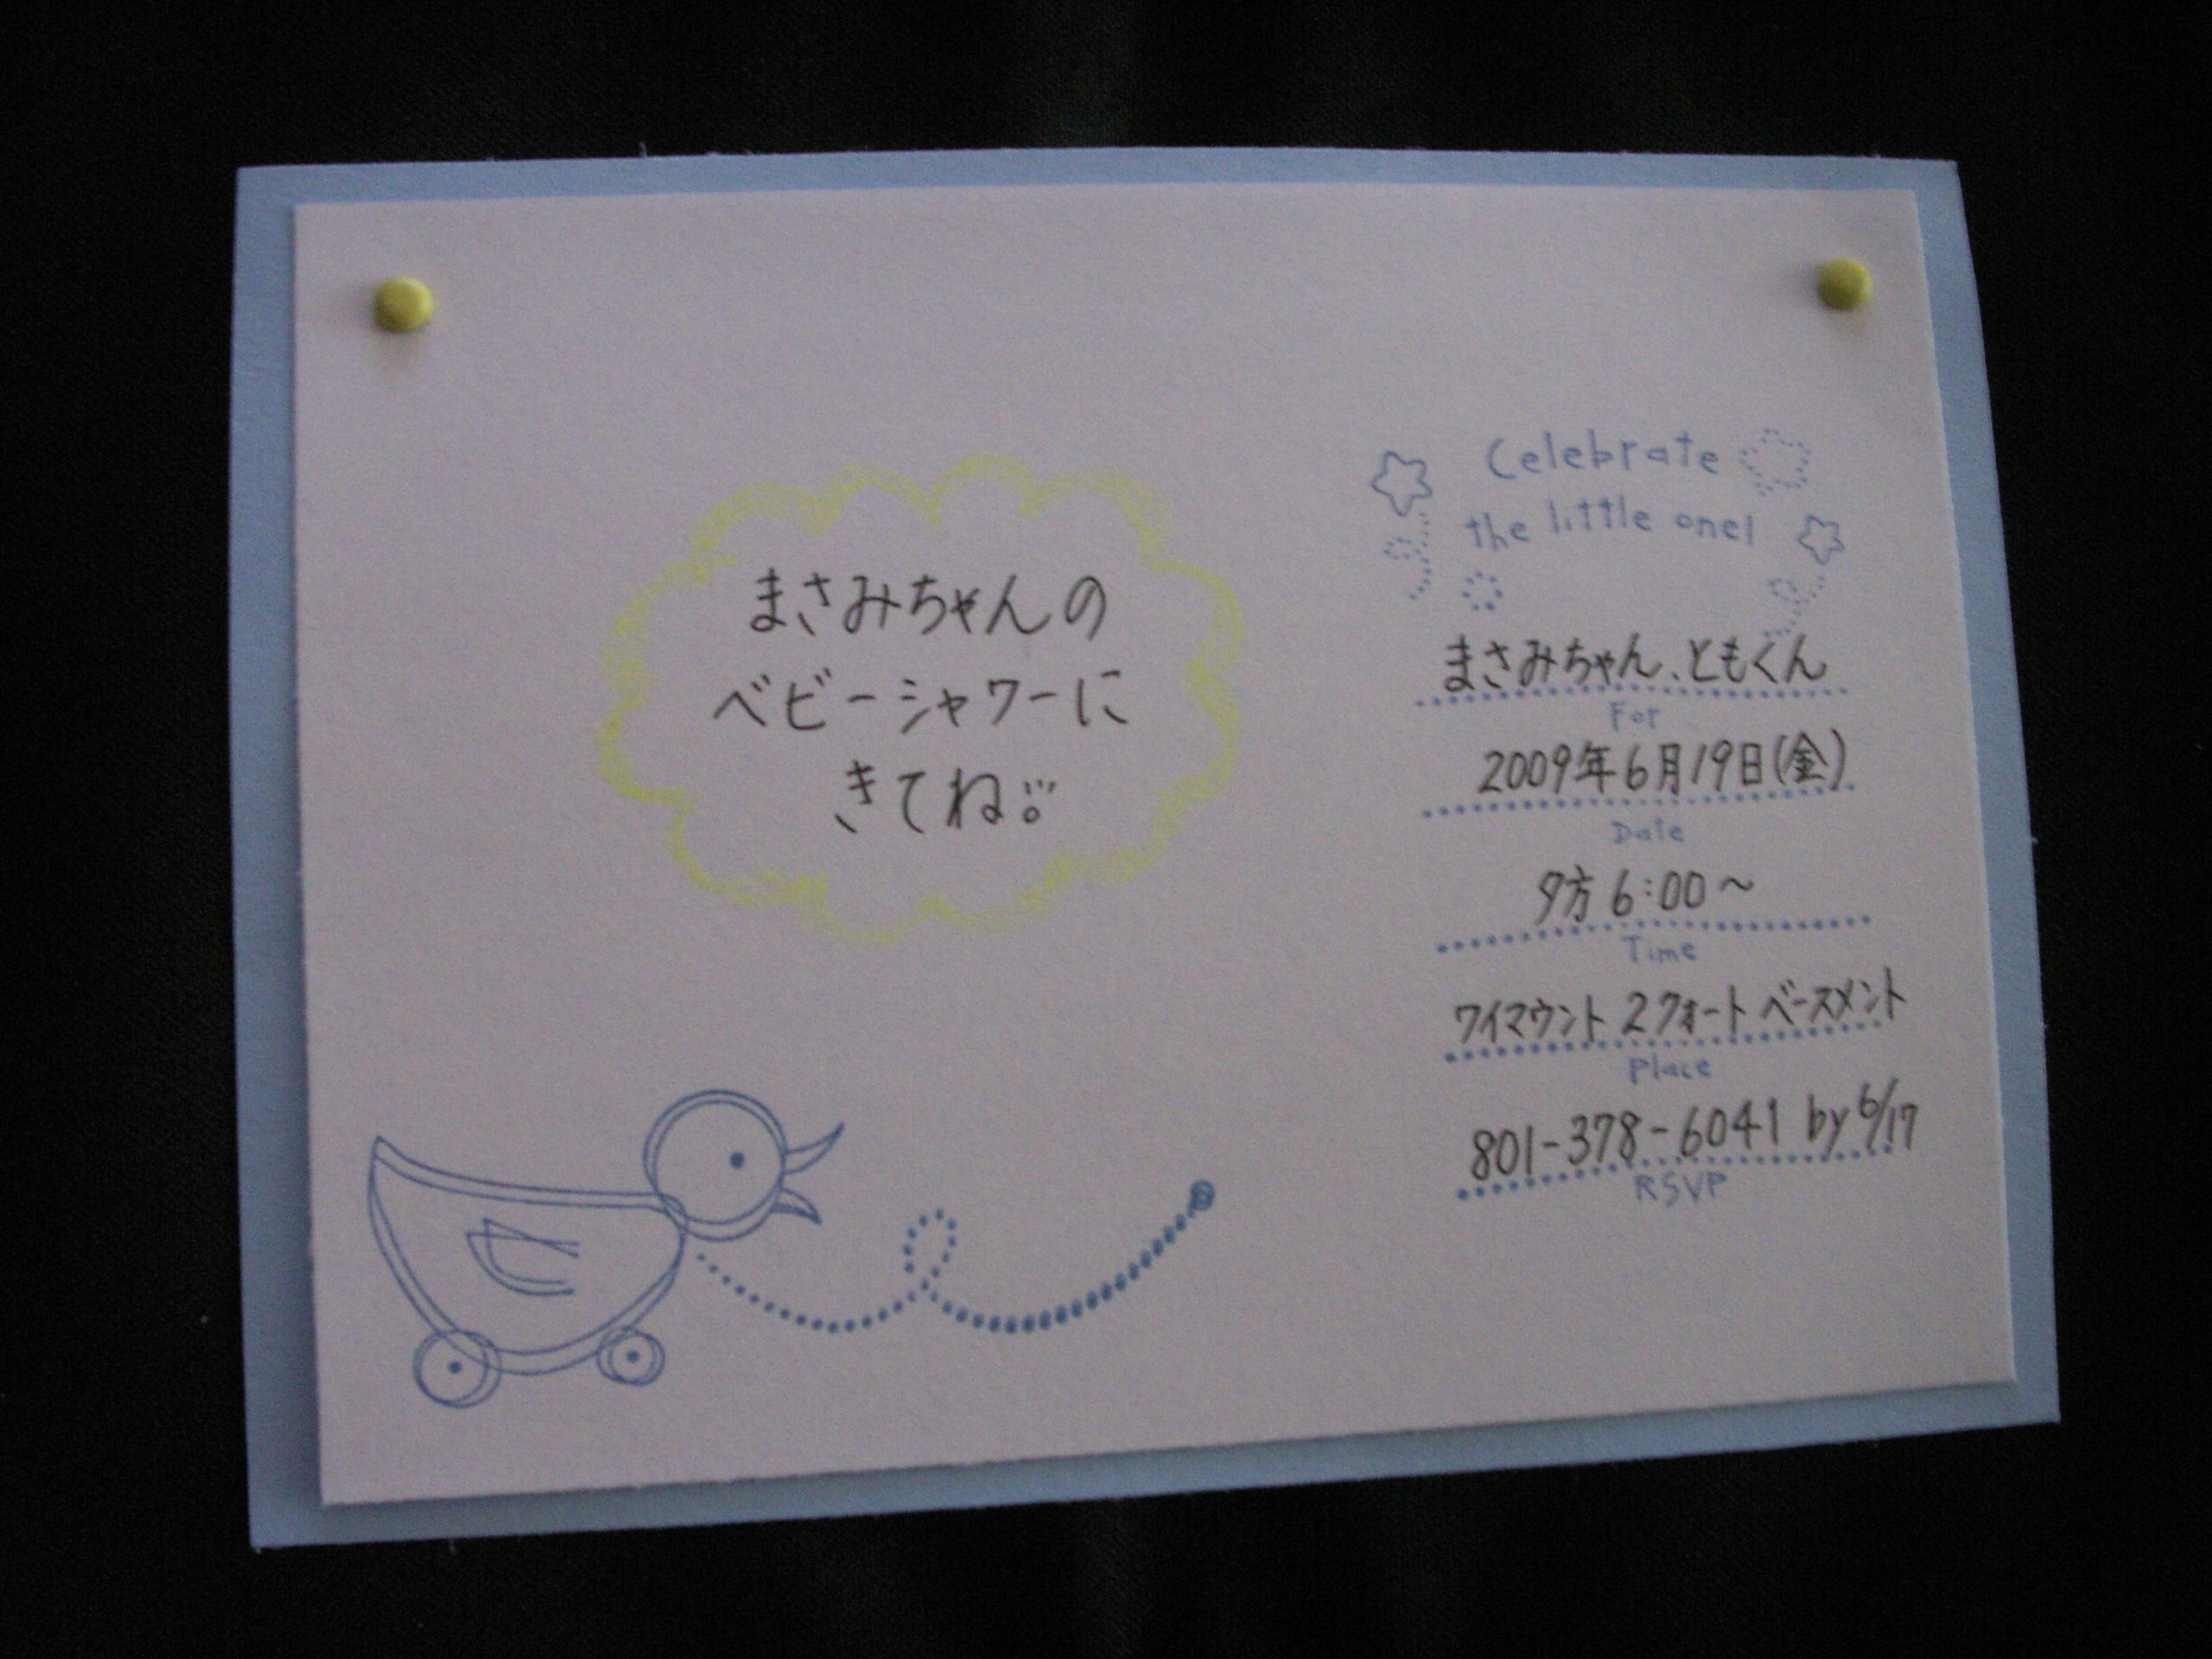 まさみちゃんの
ベビーシャワーに
きてね
Celebrate
the little one!
まさみちゃん、ともくん
For
2009年6月19日(金)
Date
夕方 6:00～
Time
ワイマウント 2クォート ベースメント
Place
801-378-6041 by 6/17
RSVP